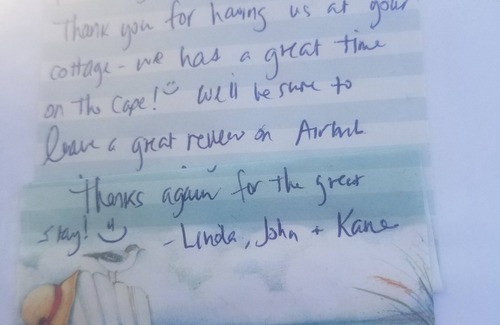 Thank you for having us at your
cottage - we has a great time
on the Cape! We'll be sure to
leave a great review on Airbnb.
Thanks again for the great
stay!
- Linda, John + Kane